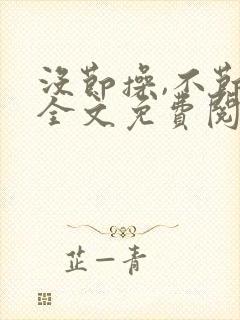 沒節操,不
全文免費閱
芷一青